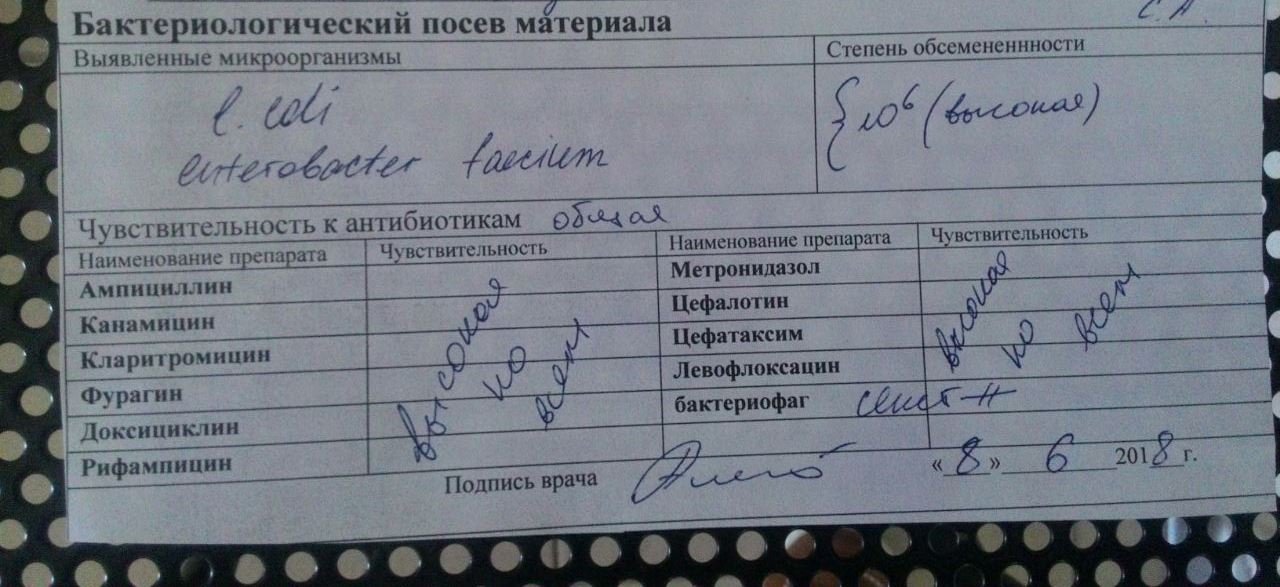 С. А.
Бактериологический посев материала
Выявленные микроорганизмы
Степень обсемененнности
E. coli
enterobacter faecium
10⁶ (высокая)
Чувствительность к антибиотикам общая
Наименование препарата Чувствительность Наименование препарата Чувствительность
Ампициллин Метронидазол
Канамицин Цефалотин
Кларитромицин Цефатаксим
Фурагин Левофлоксацин
Доксициклин бактериофаг
Рифампицин
высокая
ко
всем
высокая
ко
всем
Подпись врача « 8 » 6 2018 г.